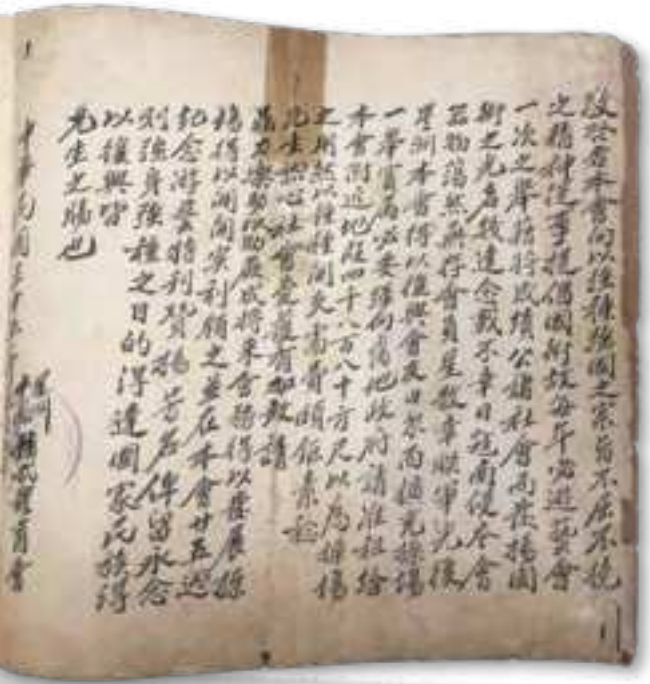 敬啓者本會向以強種強國之宗旨不屈不撓
之精神從事提倡國術故每年必遊藝會
一次之舉藉將成績公諸社會而發揚國
術之光者數達念載不幸日寇南侵本會
器物蕩然無存會員星散幸聯軍光復
星洲本會得以復興會友日眾而擴充操場
一舉實為必要經向當地政府請准租給
本會附近地段四千八百八十方尺以為操場
之用然以種種開支需費頗鉅素稔
先生熱心社會愛護有加敬請
鼎力樂助以助厥成將來會務得以發展操
場得以開闢實利賴之並在本會廿五週
紀念游藝特刊贊揚芳名俾留永念
則強身強種之目的得達國家民族得
以復興皆
先生之賜也
中華民國三十
星洲
委員會